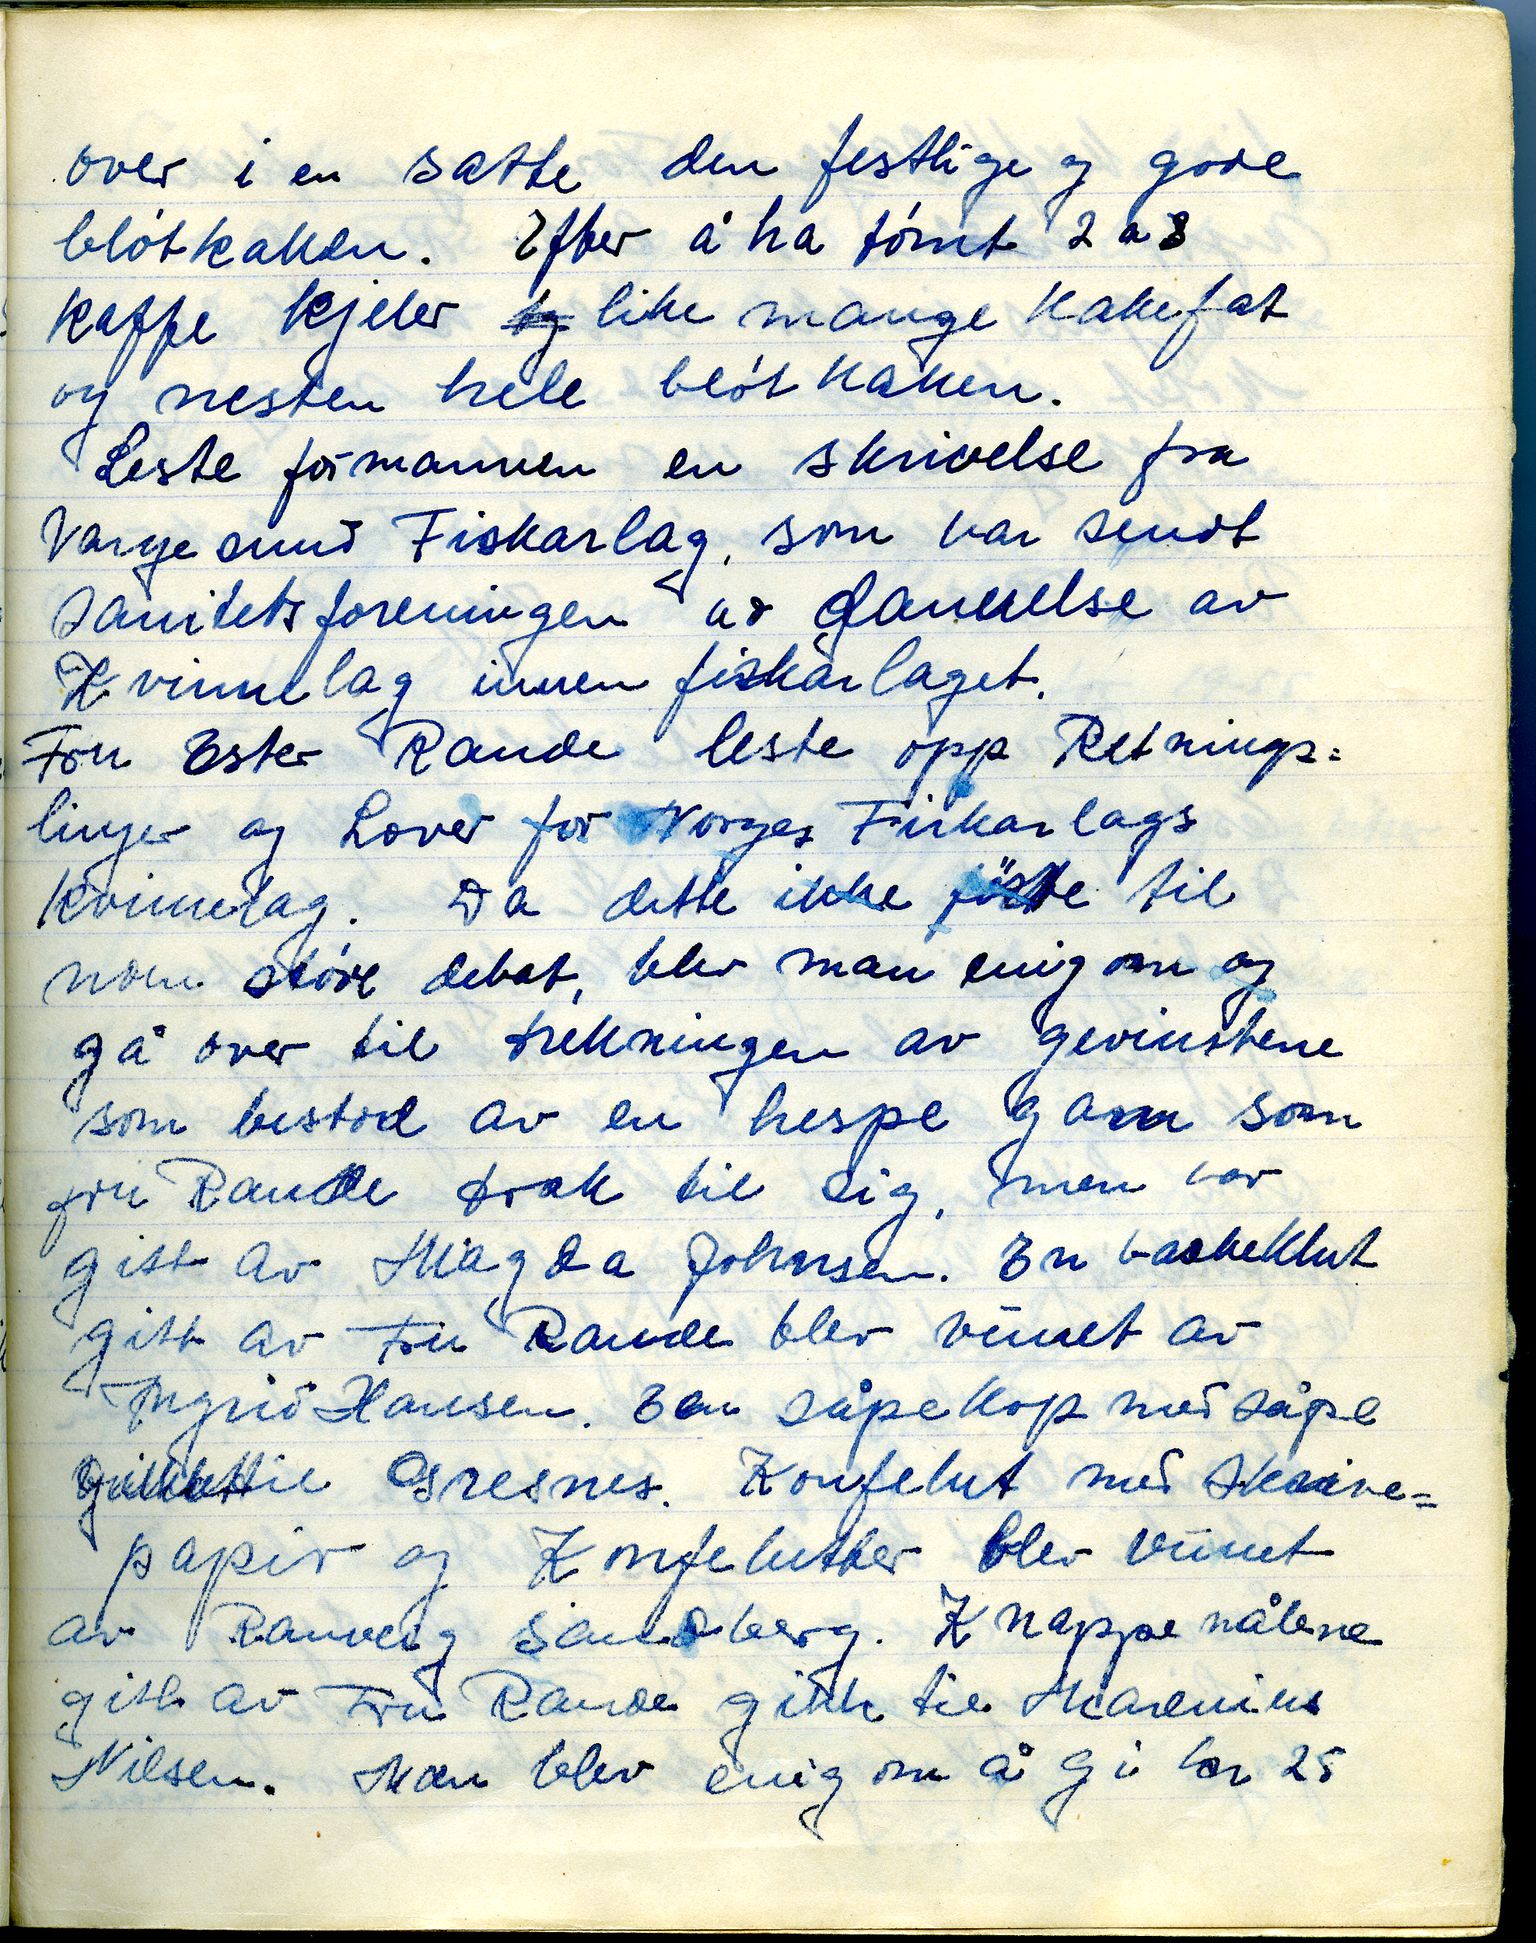 over i en satte den festlige og gode
blótkaken. Efter å ha tómt 2 a 3
kaffe kjeler og like mange kakefat
og nesten hele blót kaken.
Leste formannen en skrivelse fra
Vargesund Fiskarlag, som var sendt
sanitetsforeningen ad dannelse av
Kvinnelag innen fiskarlaget.
Fru Ester Rande leste opp Retnings=
linjer og Lover for Norges Fiskarlags
kvinnelag. Da dette ikke förte til
noen störe debat, blev man enig om og
gå over til trekningen av gevinstene
som bestod av en hespe garn som
fru Rande trak til sig, men var
gitt av Magda Johnsen. En vaskeklut
gitt av Fru Rande blev vunnet av
Ingrid Hansen. Een såpekop med såpe
til Gresnes. Konfelut med skrive=
papir og Konfelutter blev vunnet
av Ranveig Sandberg. Knappenålene
gitt av Fru Rande gikk til Marenius
Nilsen. Man blev enig om å gi kr 25